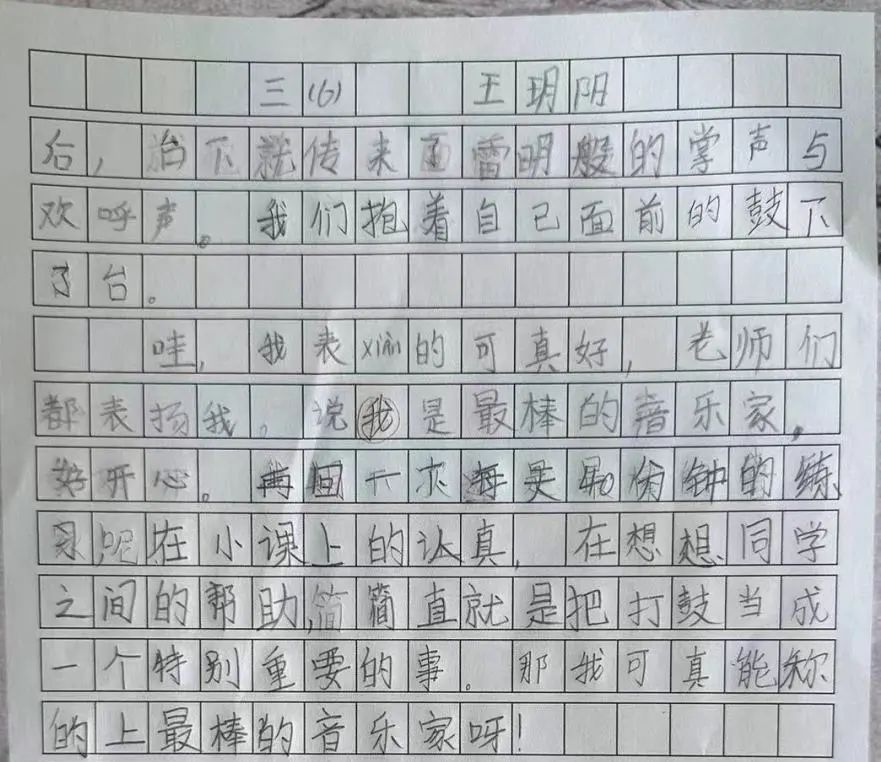 三(6) 王玥阴
后，台下就传来了雷明般的掌声与
欢呼声。我们抱着自己面前的鼓下
了台。
哇，我表xiàn的可真好，老师们
都表扬我。说我是最棒的音乐家，
好开心。再回一次每天30分钟的练
习呢在小课上的认真，在想想同学
之间的帮助，简简直就是把打鼓当成
一个特别重要的事。那我可真能称
的上最棒的音乐家呀！